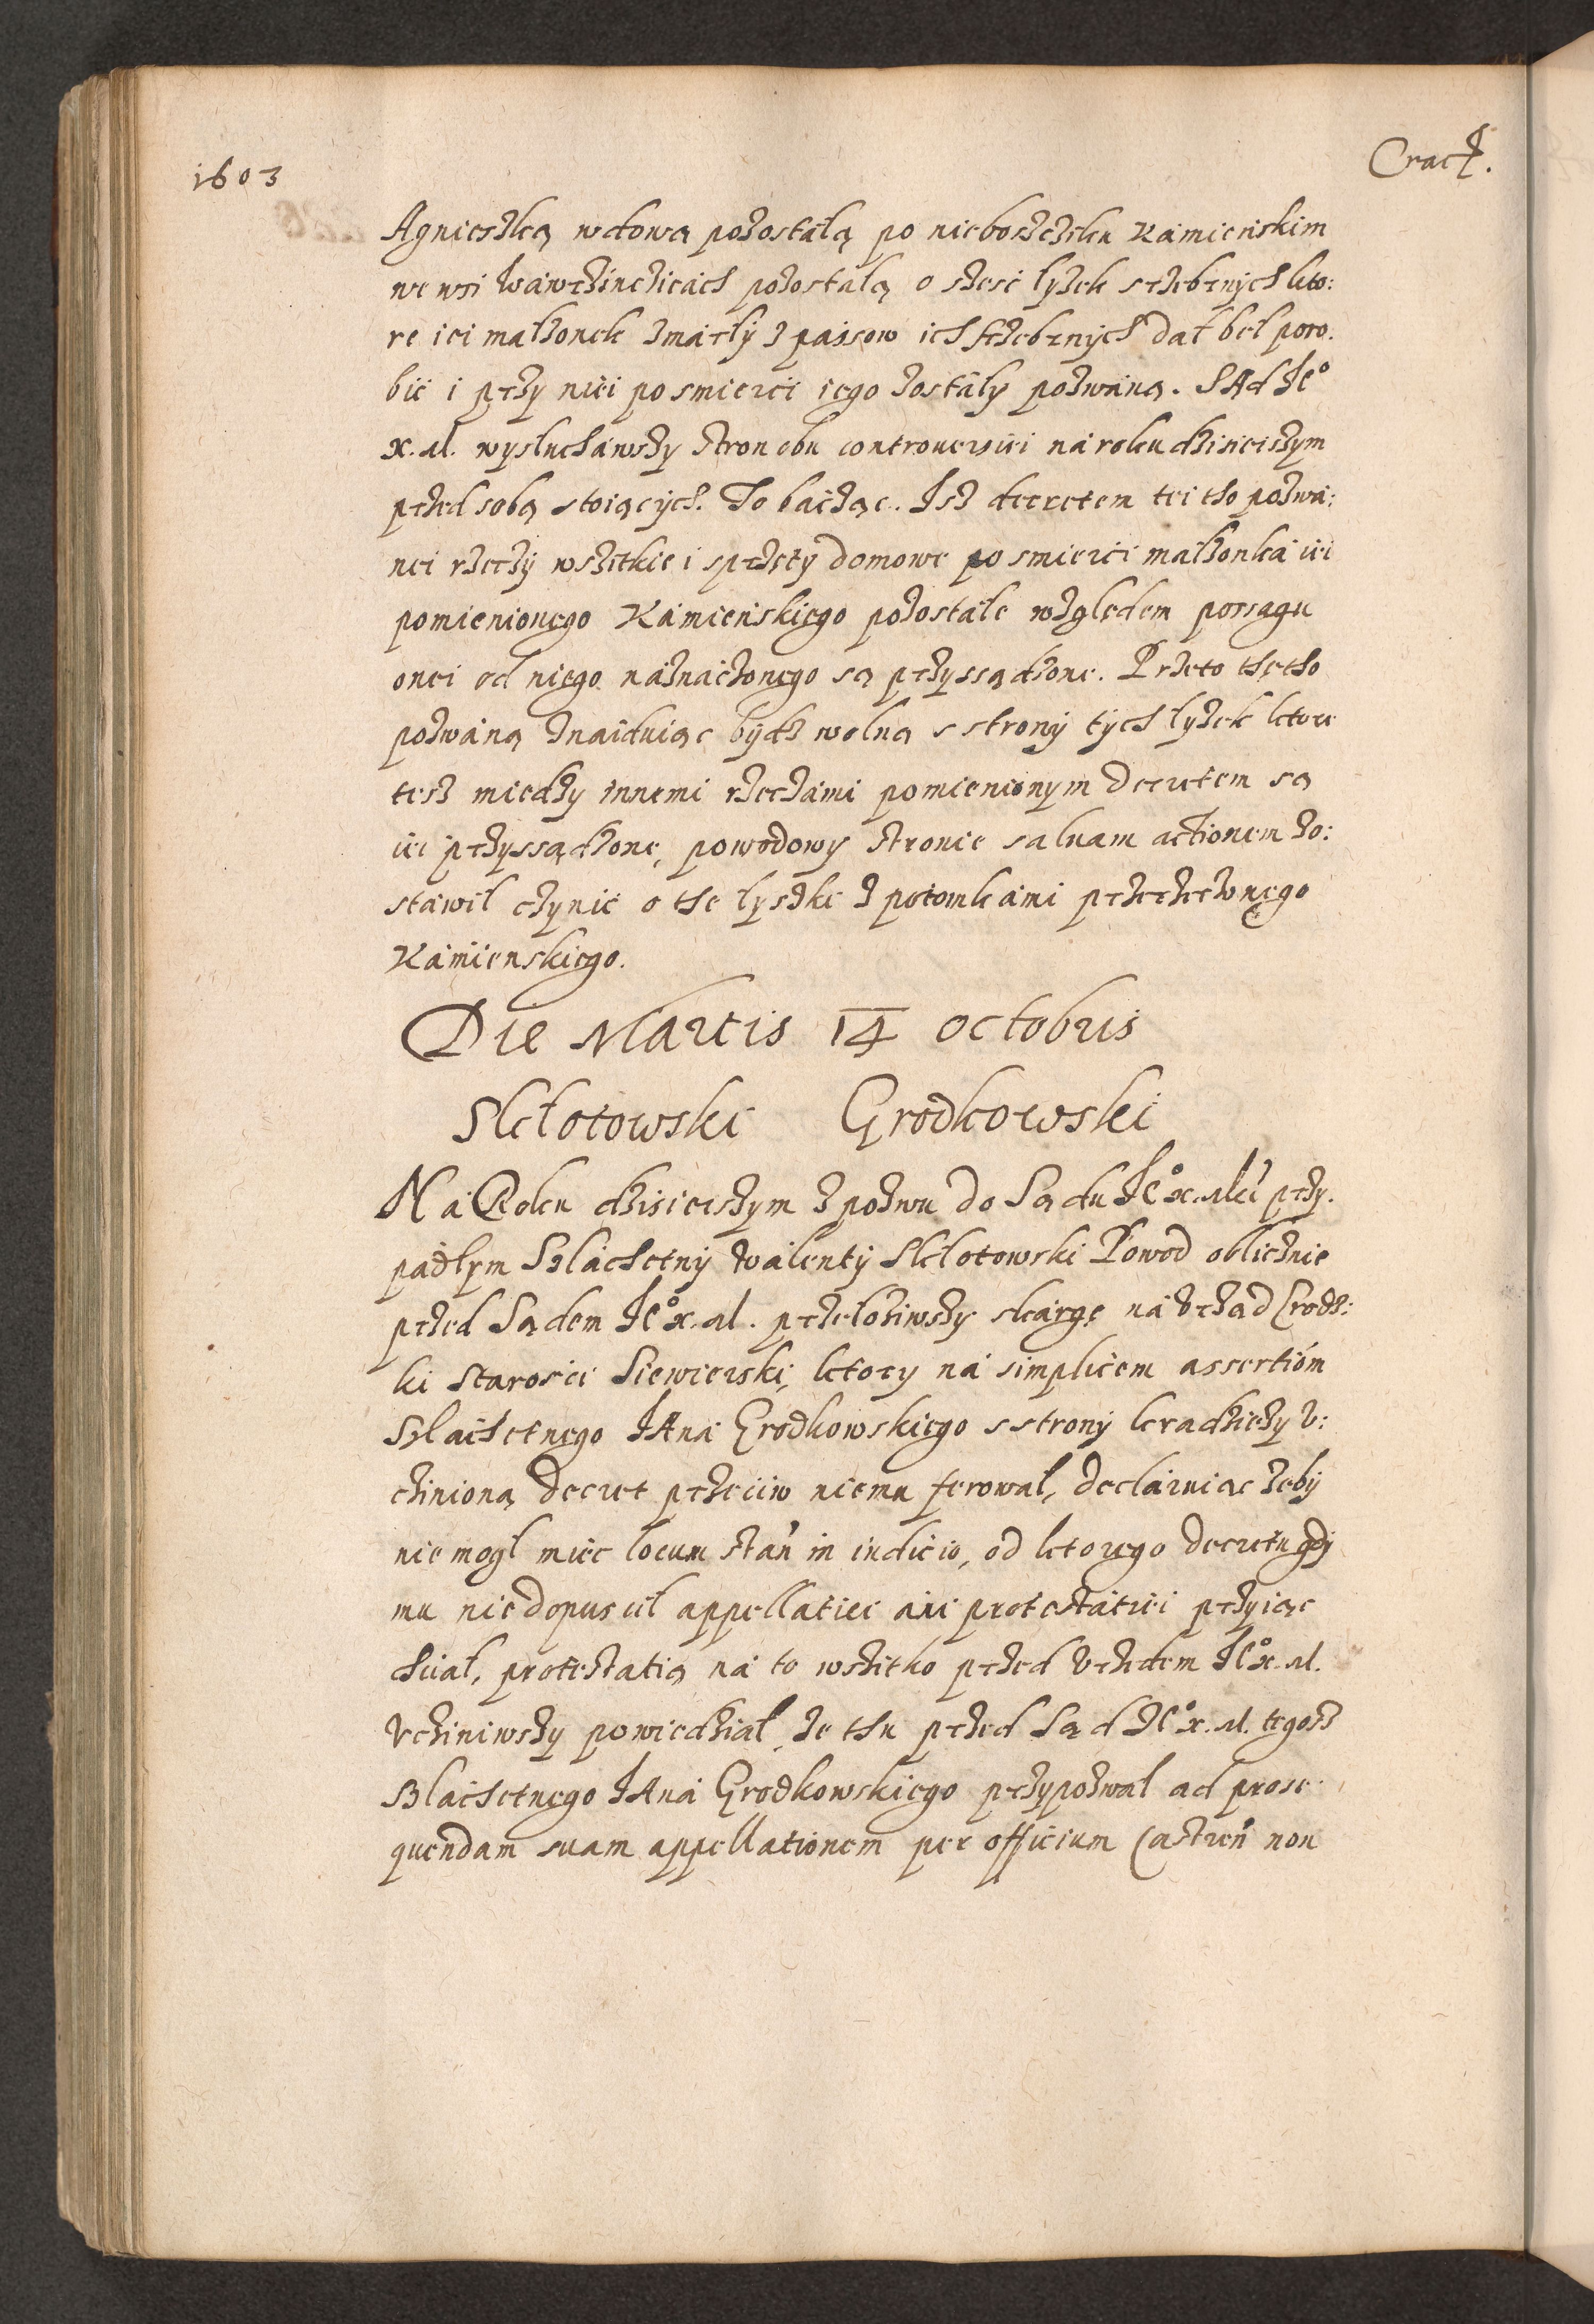 1603
Crac.
Agnieszką wdową pozostałą po nieboszczeku Kamieńskim
we wsi Wawrzinczicach pozostałą o szesc lyżek srzebrnych kto:
re iei małżonek zmarły z passow ich srzebrnych dał beł poro.
bić i przy niei po smierci iego zostały pozwaną. SAd Je°
x. M. wysłuchawszy stron obu controuersiei na roku dzisieiszym
przed sobą stoiących. To bacząc. Jsz decretem tei tho pozwa:
nei rzeczy wszitkie i sprzęty domowe po smierci małżonka iei
pomienionego Kamieńskiego pozostałe względem possagu
onei od niego naznaczonego są przyssądzone. Przeto thętho
pozwaną znaiduiąc bydz wolną s strony tych lyżek ktore
tesz miedzy innemi rzeczami pomienionym decretem są
iei przyssądzone, powodowy stronie saluam actionem zo:
stawił czynić o the lyszki z potomkami przerzeczonego
Kamienskiego.
Die Martis 14 octobris
Skłotowski Grodkowski
Na Roku dzisieiszym z pozwu do Sądu Je° x. Mci przy.
padłym Szlachetny Walenty Skłotowski Powod oblicznie
przed Sądem Je° x. M. przełożiwszy skargę na Vrząd Grodz:
ki Starosci Siewierski, ktory na simplicem assertiom
Szlachetnego JAna Grodkowskiego s strony kradzieży v:
cziniona decret przeciw niemu ferował, declaruiąc żeby
nie mogł mieć locum stan in iudicio, od ktorego decretu gdj
mu nie dopuscił appellatiei ani protestatiei przyiąc
chciał, protestatią na to wszitko przed Vrzędem Je° x. M.
Vcziniwszy powiedział, że thu przed Sąd Je° x. M. tegosz
Szlachetnego JAna Grodkowskiego przypozwał ad prose
quendam suam appellationem per officium Castren non